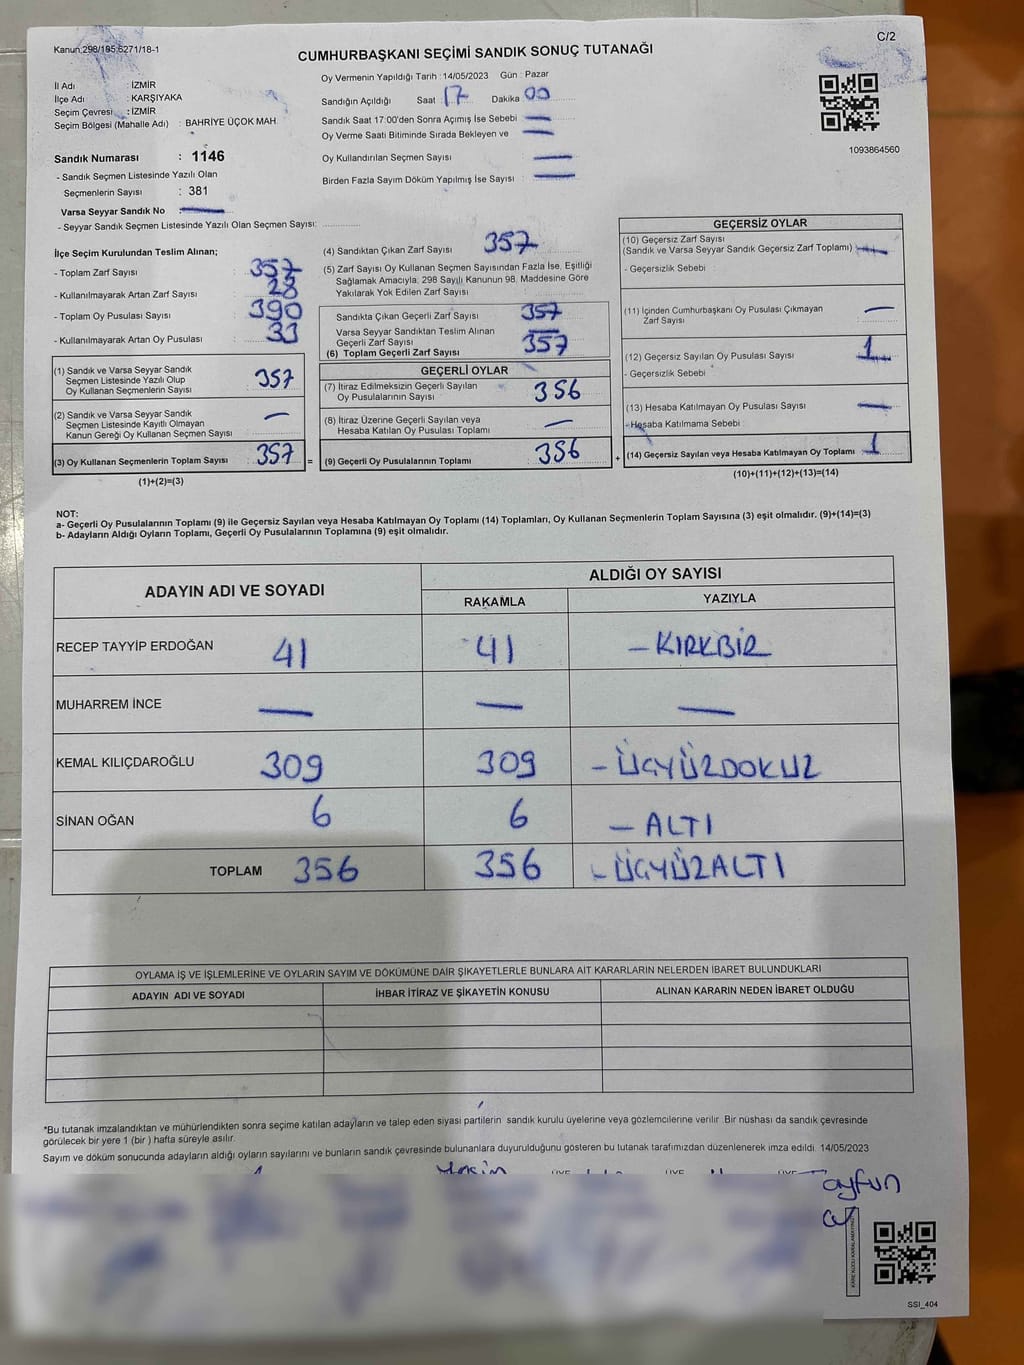 Kanun:298/195,6271/18-1
C/2
CUMHURBAŞKANI SEÇİMİ SANDIK SONUÇ TUTANAĞI
İl Adı : İZMİR
İlçe Adı : KARŞIYAKA
Seçim Çevresi : İZMİR
Seçim Bölgesi (Mahalle Adı) : BAHRİYE ÜÇOK MAH.
Oy Vermenin Yapıldığı Tarih : 14/05/2023 Gün : Pazar
Sandığın Açıldığı Saat 17 Dakika 00
Sandık Saat 17:00'den Sonra Açımış İse Sebebi —
Oy Verme Saati Bitiminde Sırada Bekleyen ve —
Oy Kullandırılan Seçmen Sayısı —
Birden Fazla Sayım Döküm Yapılmış İse Sayısı —
1093864560
Sandık Numarası : 1146
- Sandık Seçmen Listesinde Yazılı Olan
Seçmenlerin Sayısı : 381
Varsa Seyyar Sandık No : —
- Seyyar Sandık Seçmen Listesinde Yazılı Olan Seçmen Sayısı:
İlçe Seçim Kurulundan Teslim Alınan;
- Toplam Zarf Sayısı : 357
- Kullanılmayarak Artan Zarf Sayısı : 23
- Toplam Oy Pusulası Sayısı : 390
- Kullanılmayarak Artan Oy Pusulası : 33
(1) Sandık ve Varsa Seyyar Sandık
Seçmen Listesinde Yazılı Olup
Oy Kullanan Seçmenlerin Sayısı : 357
(2) Sandık ve Varsa Seyyar Sandık
Seçmen Listesinde Kayıtlı Olmayan
Kanun Gereği Oy Kullanan Seçmen Sayısı : —
(3) Oy Kullanan Seçmenlerin Toplam Sayısı : 357 =
(1)+(2)=(3)
(4) Sandıktan Çıkan Zarf Sayısı : 357
(5) Zarf Sayısı Oy Kullanan Seçmen Sayısından Fazla İse, Eşitliği
Sağlamak Amacıyla; 298 Sayılı Kanunun 98. Maddesine Göre
Yakılarak Yok Edilen Zarf Sayısı :
Sandıkta Çıkan Geçerli Zarf Sayısı : 357
Varsa Seyyar Sandıktan Teslim Alınan
Geçerli Zarf Sayısı : —
(6) Toplam Geçerli Zarf Sayısı : 357
GEÇERLİ OYLAR
(7) İtiraz Edilmeksizin Geçerli Sayılan
Oy Pusulalarının Sayısı : 356
(8) İtiraz Üzerine Geçerli Sayılan veya
Hesaba Katılan Oy Pusulası Toplamı : —
(9) Geçerli Oy Pusulalarının Toplamı : 356 +
GEÇERSİZ OYLAR
(10) Geçersiz Zarf Sayısı
(Sandık ve Varsa Seyyar Sandık Geçersiz Zarf Toplamı) : —
- Geçersizlik Sebebi :
(11) İçinden Cumhurbaşkanı Oy Pusulası Çıkmayan
Zarf Sayısı : —
(12) Geçersiz Sayılan Oy Pusulası Sayısı : 1
- Geçersizlik Sebebi :
(13) Hesaba Katılmayan Oy Pusulası Sayısı : —
- Hesaba Katılmama Sebebi :
(14) Geçersiz Sayılan veya Hesaba Katılmayan Oy Toplamı : 1
(10)+(11)+(12)+(13)=(14)
NOT:
a- Geçerli Oy Pusulalarının Toplamı (9) ile Geçersiz Sayılan veya Hesaba Katılmayan Oy Toplamı (14) Toplamları, Oy Kullanan Seçmenlerin Toplam Sayısına (3) eşit olmalıdır. (9)+(14)=(3)
b- Adayların Aldığı Oyların Toplamı, Geçerli Oy Pusulalarının Toplamına (9) eşit olmalıdır.
ADAYIN ADI VE SOYADI
ALDIĞI OY SAYISI
RAKAMLA YAZIYLA
RECEP TAYYİP ERDOĞAN 41 41 - KIRKBİR
MUHARREM İNCE — — —
KEMAL KILIÇDAROĞLU 309 309 - ÜÇYÜZDOKUZ
SİNAN OĞAN 6 6 - ALTI
TOPLAM 356 356 - ÜÇYÜZALTI
OYLAMA İŞ VE İŞLEMLERİNE VE OYLARIN SAYIM VE DÖKÜMÜNE DAİR ŞİKAYETLERLE BUNLARA AİT KARARLARIN NELERDEN İBARET BULUNDUKLARI
ADAYIN ADI VE SOYADI İHBAR İTİRAZ VE ŞİKAYETİN KONUSU ALINAN KARARIN NEDEN İBARET OLDUĞU
*Bu tutanak imzalandıktan ve mühürlendikten sonra seçime katılan adayların ve talep eden siyasi partilerin sandık kurulu üyelerine veya gözlemcilerine verilir. Bir nüshası da sandık çevresinde
görülecek bir yere 1 (bir ) hafta süreyle asılır.
Sayım ve döküm sonucunda adayların aldığı oyların sayılarını ve bunların sandık çevresinde bulunanlara duyurulduğunu gösteren bu tutanak tarafımızdan düzenlenerek imza edildi. 14/05/2023
ÜYE ÜYE ÜYE
SSI_404